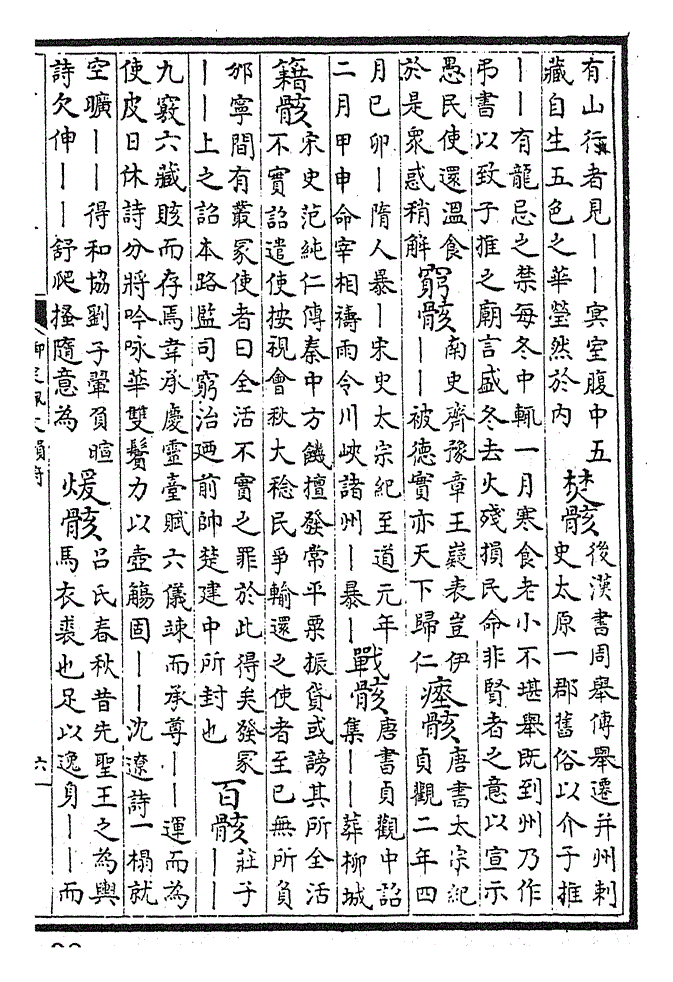 有山行者見｜｜冥室腹中五
藏自生五色之華瑩然於内
焚骸
後漢書周舉傳舉遷并州刺
史太原一郡舊俗以介子推
｜｜有龍忌之禁每冬中輒一月寒食老小不堪舉既到州乃作
弔書以致子推之廟言盛冬去火殘損民命非賢者之意以宣示
愚民使還溫食
於是衆惑稍解
窮骸
南史齊豫章王嶷表豈伊
｜｜被德實亦天下歸仁
瘞骸
唐書太宗紀
貞觀二年四
月已卯｜隋人暴｜宋史太宗紀至道元年
二月甲申命宰相禱雨令川峽諸州｜暴｜
戰骸
唐書貞觀中詔
集｜｜葬柳城
籍骸
宋史范純仁傳秦中方饑擅發常平粟振貸或謗其所全活
不實詔遣使按視會秋大稔民爭輸還之使者至已無所負
邠寧間有叢冢使者曰全活不實之罪於此得矣發冢
｜｜上之詔本路監司窮治廼前帥楚建中所封也
百骸
莊子
｜｜
九竅六藏賅而存焉韋承慶靈臺賦六儀竦而承尊｜｜運而為
使皮日休詩分將吟咏華雙鬢力以壺觴固｜｜沈遼詩一榻就
空曠｜｜得和協劉子翬負暄
詩欠伸｜｜舒爬搔隨意為
煖骸
呂氏春秋昔先聖王之為輿
馬衣裘也足以逸身｜｜而
六